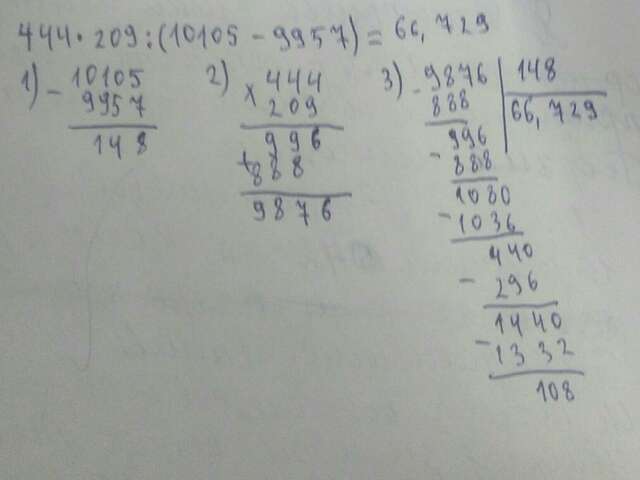 444·209:(10105-9957)=66,729
1) 10105 2) 444 3) 9876 148
- 9957 x 209 - 888 66,729
148 996 996
+888 - 888
9876 1080
- 1036
440
- 296
1440
- 1332
108